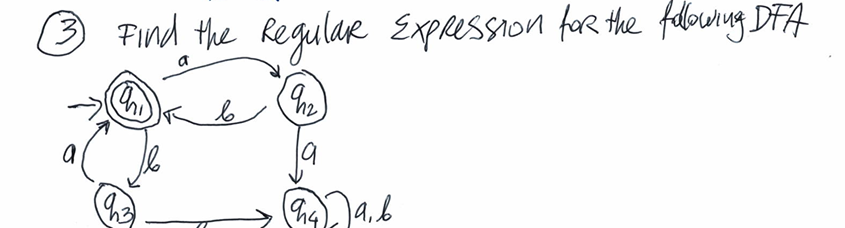 3 Find the Regular Expression for the following DFA
a
q1
q2
b
a
b
a
q3
q4
a, b